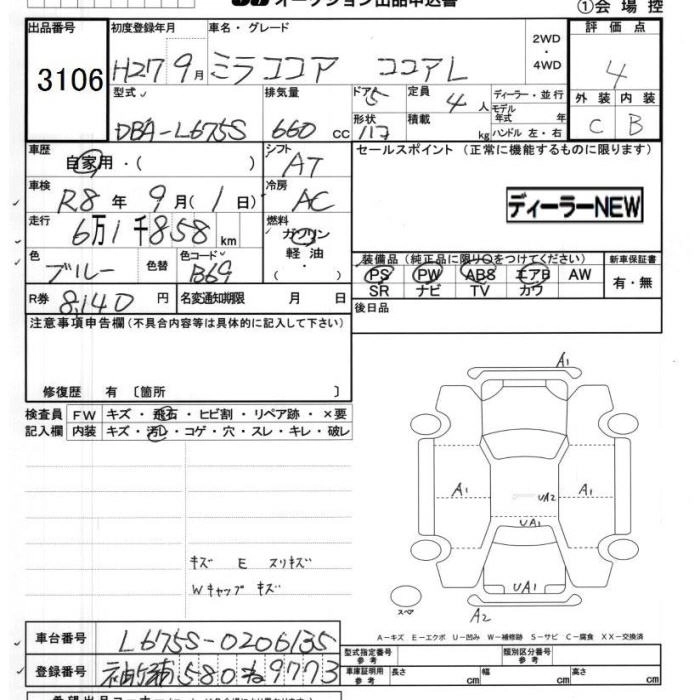 オークション出品申込書
①会場控
出品番号 初度登録年月 車名・グレード 評価点
3106 H27 9月 ミラココア ココアL 2WD・4WD 4
型式 排気量 ドア 定員 ディーラー・並行 外装 内装
DBA-L675S 660cc 5 4人 モデル年式 年 C B
形状 積載 kg ハンドル 左・右
車歴 シフト セールスポイント (正常に機能するものに限ります)
自家用・( ) AT
車検 冷房
R8年 9月(1日) AC ディーラーNEW
走行 燃料
6万1千858km ガソリン
軽油
( )
色 色替 色コード 装備品(純正品に限り○をつけてください) 新車保証書
ブルー B69 PS PW ABS エアB AW 有・無
SR ナビ TV カワ
R券 8,140円 名変通知期限 月 日 後日品
注意事項申告欄(不具合内容等は具体的に記入して下さい)
修復歴 有〔箇所 〕
検査員 FW キズ・飛石・ヒビ割・リペア跡・×要
記入欄 内装 キズ・汚レ・コゲ・穴・スレ・キレ・破レ
A1
A1 UA2 A1
UA1
キズ E スリキズ
Wキャップ キズ
UA1
スペア
A2
A-キズ E-エクボ U-凹み W-補修跡 S-サビ C-腐食 XX-交換済
車台番号 L675S-0206135
型式指定番号 参考 類別区分番号 参考
登録番号 580 ね 9773
車庫証明用 参考 長さ cm 幅 cm 高さ cm